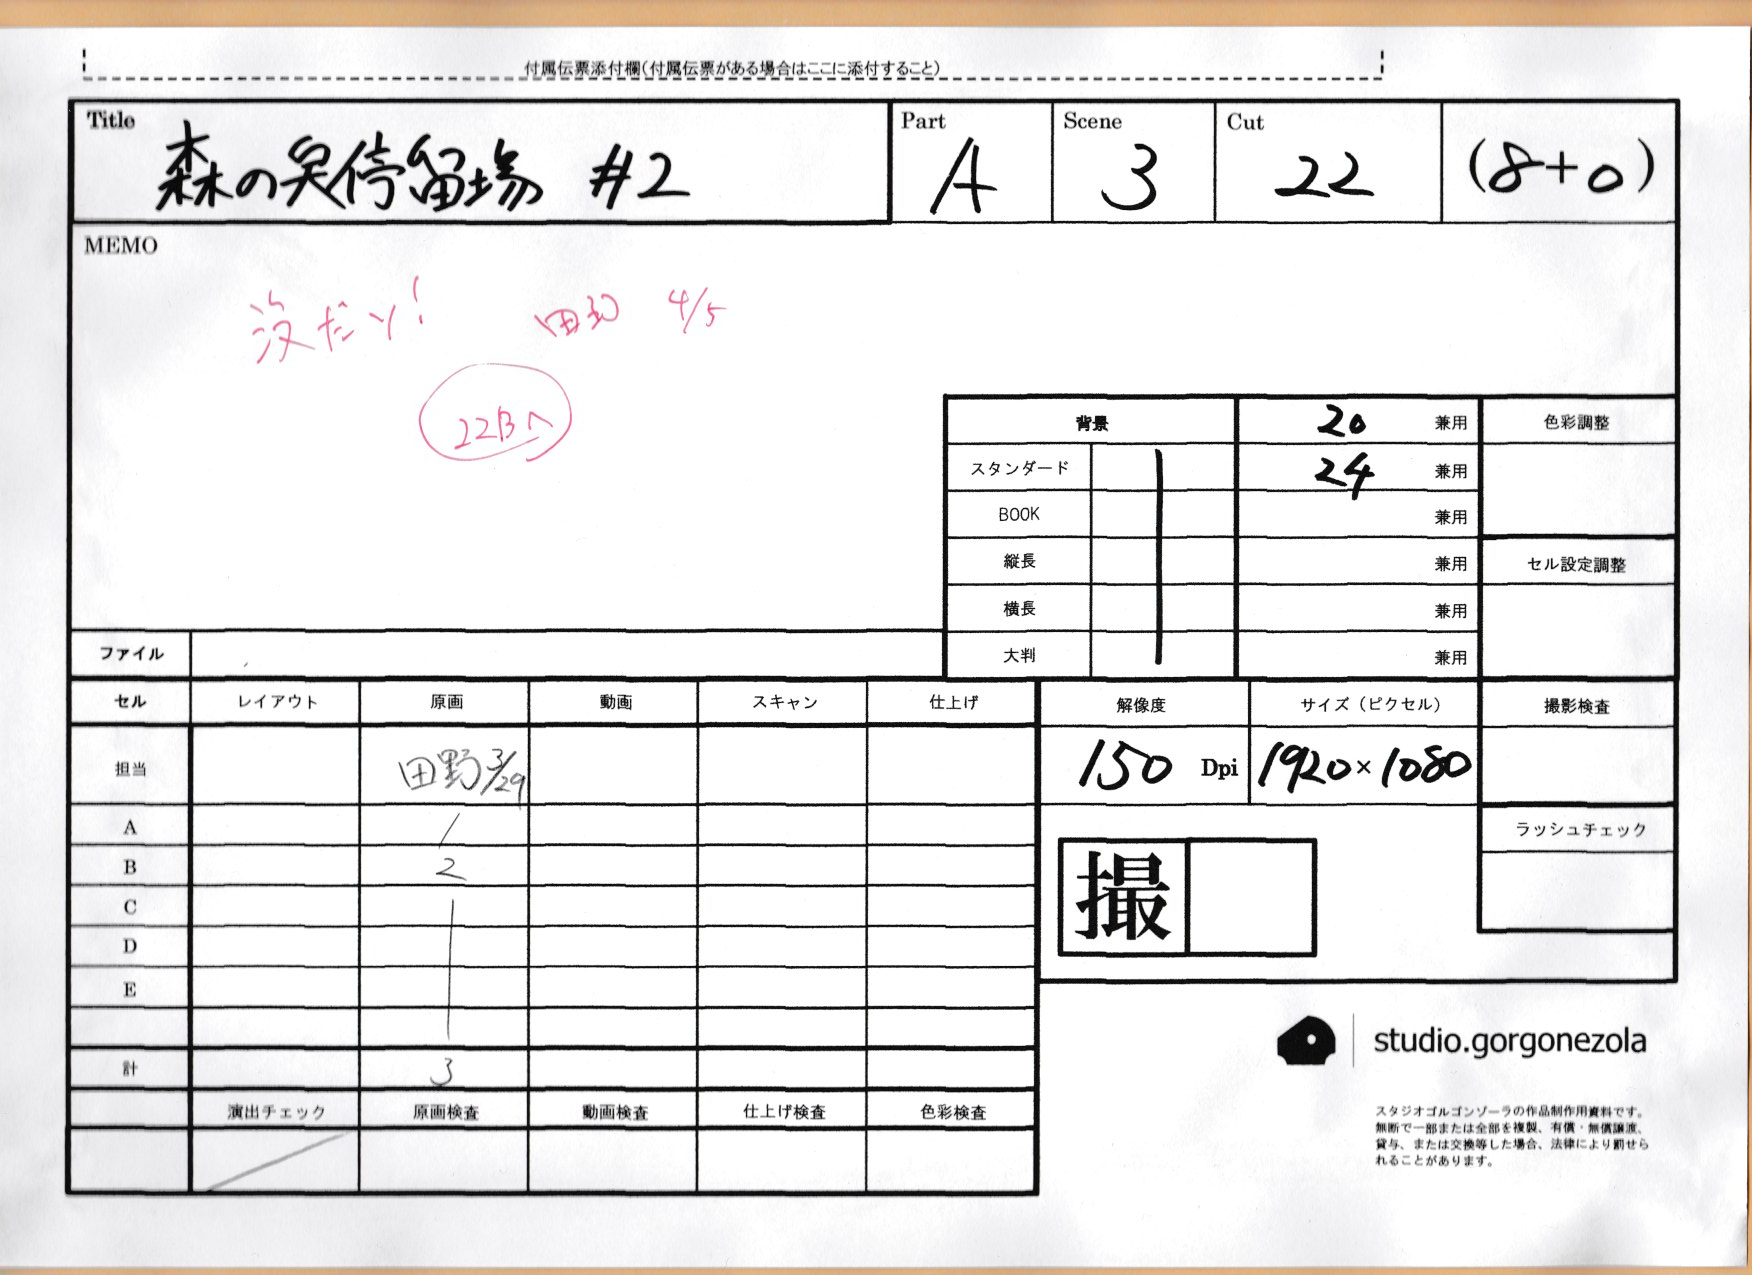 付属伝票添付欄(付属伝票がある場合はここに添付すること)
Title 森の 停留場 #2
Part A
Scene 3
Cut 22
(8+0)
MEMO
没だソ! 田野 4/5
22Bへ
背景 20 兼用 色彩調整
スタンダード 24 兼用
BOOK 兼用
縦長 兼用 セル設定調整
横長 兼用
大判 兼用
ファイル
セル レイアウト 原画 動画 スキャン 仕上げ
担当 田野 3/29
A 1
B 2
C
D
E
計 3
演出チェック 原画検査 動画検査 仕上げ検査 色彩検査
解像度 サイズ(ピクセル) 撮影検査
150 Dpi 1920×1080
ラッシュチェック
撮
studio.gorgonezola
スタジオゴルゴンゾーラの作品制作用資料です。
無断で一部または全部を複製、有償・無償譲渡、
貸与、または交換等した場合、法律により罰せら
れることがあります。